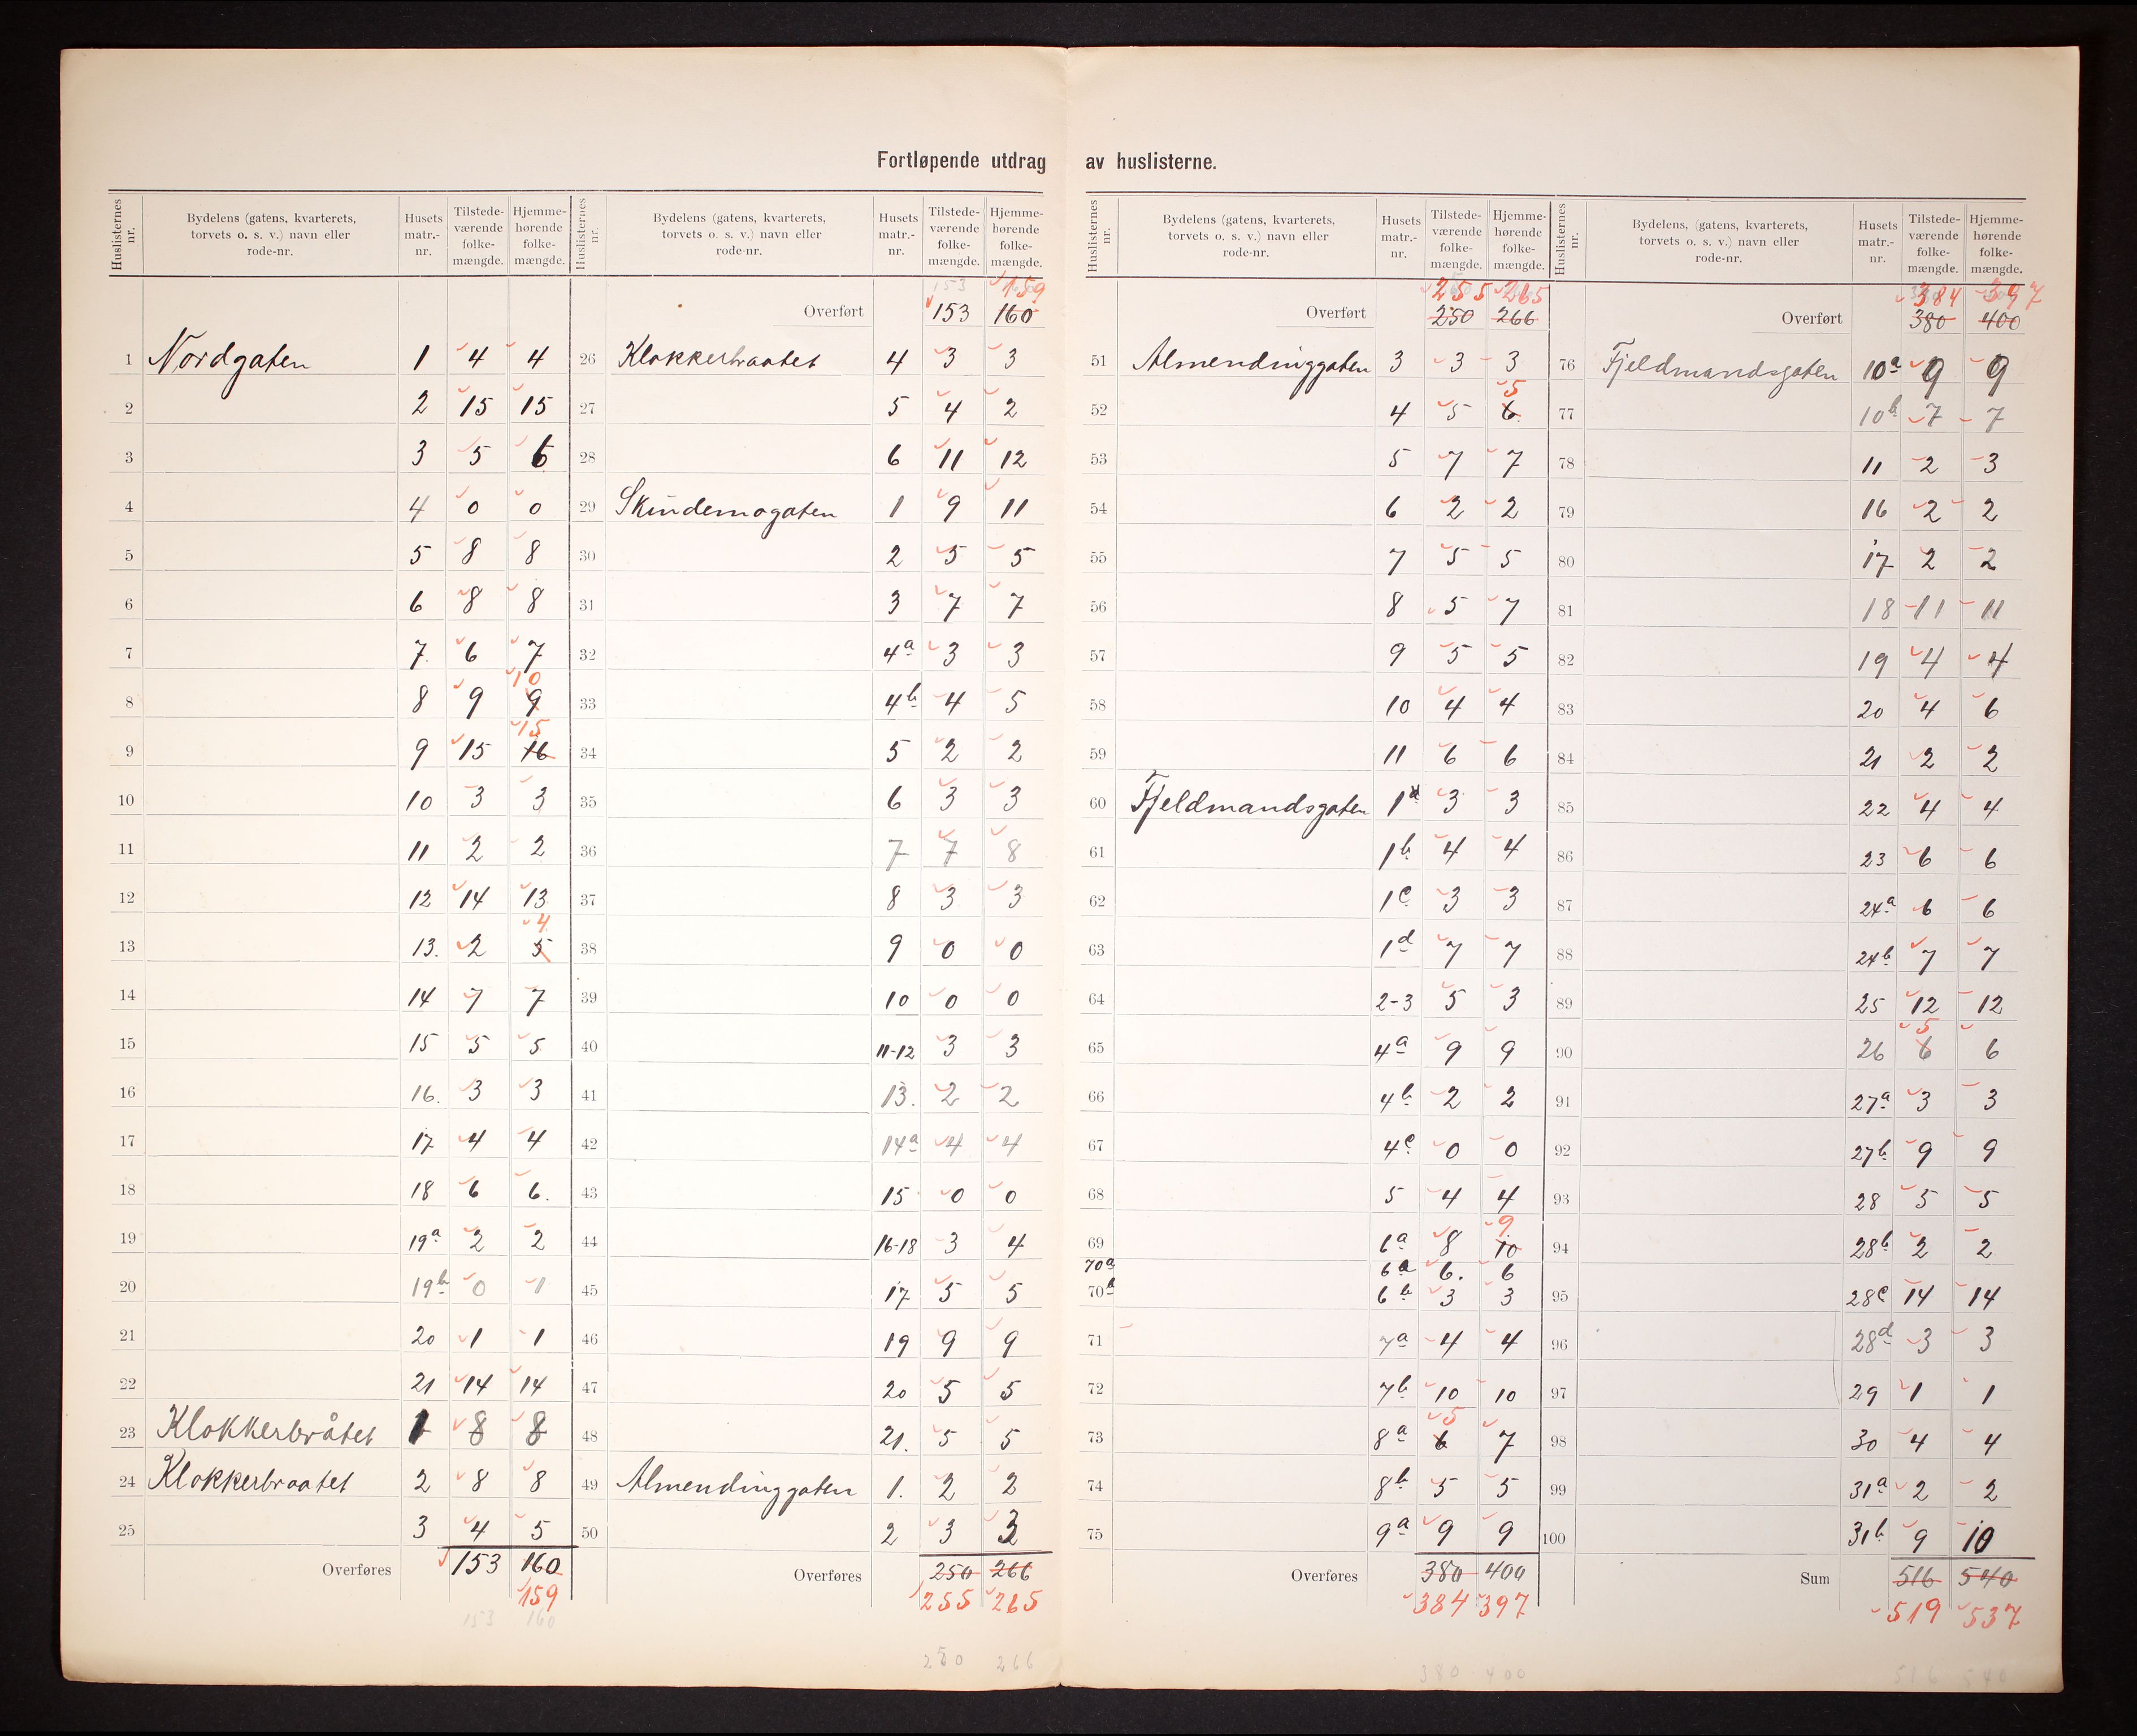 Fortløpende utdrag av huslisterne.
Huslisternes nr. | Bydelens (gatens, kvarterets, torvets o. s. v.) navn eller rode-nr. | Husets matr.-nr. | Tilstede-værende folke-mængde. | Hjemme-hørende folke-mængde.
1 Nordgaten 1 4 4
2 2 15 15
3 3 5 6
4 4 0 0
5 5 8 8
6 6 8 8
7 7. 6 7
8 8 9 9 10
9 9 15 16 15
10 10 3 3
11 11 2 2
12 12 14 13
13 13. 2 5 4
14 14 7 7
15 15 5 5
16 16. 3 3
17 17 4 4
18 18 6 6.
19 19a 2 2
20 19b 0 1
21 20 1 1
22 21 14 14
23 Klokkerbråtet 1 8 8
24 Klokkerbraatet 2 8 8
25 3 4 5
Overføres 153 160
159
153 160
Huslisternes nr. | Bydelens (gatens, kvarterets, torvets o. s. v.) navn eller rode-nr. | Husets matr.-nr. | Tilstede-værende folke-mængde. | Hjemme-hørende folke-mængde.
153 159
Overført 153 160
26 Klokkerbraatet 4 3 3
27 5 4 2
28 6 11 12
29 Skindemogaten 1 9 11
30 2 5 5
31 3 7 7
32 4a 3 3
33 4b 4 5
34 5 2 2
35 6 3 3
36 7 7 8
37 8 3 3
38 9 0 0
39 10 0 0
40 11-12 3 3
41 13. 2 2
42 14a 4 4
43 15 0 0
44 16-18 3 4
45 17 5 5
46 19 9 9
47 20 5 5
48 21. 5 5
49 Almendinggaten 1. 2 2
50 2 3 3
Overføres 250 266
255 265
250 266
Huslisternes nr. | Bydelens (gatens, kvarterets, torvets o. s. v.) navn eller rode-nr. | Husets matr.-nr. | Tilstede-værende folke-mængde. | Hjemme-hørende folke-mængde.
255 265
Overført 250 266
51 Almendinggaten 3 3 3
52 4 5 6 5
53 5 7 7
54 6 2 2
55 7 5 5
56 8 5 7
57 9 5 5
58 10 4 4
59 11 6 6
60 Fjeldmandsgaten 1a 3 3
61 1b 4 4
62 1c 3 3
63 1d 7 7
64 2-3 5 3
65 4a 9 9
66 4b 2 2
67 4c 0 0
68 5 4 4
69 6a 8 10 9
70a 6a 6. 6
70b 6b 3 3
71 7a 4 4
72 7b 10 10
73 8a 6 5 7
74 8b 5 5
75 9a 9 9
Overføres 380 400
384 397
380 400
Huslisternes nr. | Bydelens, (gatens, kvarterets, torvets o. s. v.) navn eller rode-nr. | Husets matr.-nr. | Tilstede-værende folke-mængde. | Hjemme-hørende folke-mængde.
384 397
Overført 380 400
76 Fjeldmandsgaten 10a 9 9
77 10b 7 7
78 11 2 3
79 16 2 2
80 17 2 2
81 18 11 11
82 19 4 4
83 20 4 6
84 21 2 2
85 22 4 4
86 23 6 6
87 24a 6 6
88 24b 7 7
89 25 12 12
90 26 6 5 6
91 27a 3 3
92 27b 9 9
93 28 5 5
94 28b 2 2
95 28c 14 14
96 28d 3 3
97 29 1 1
98 30 4 4
99 31a 2 2
100 31b 9 10
Sum 516 540
519 537
516 540